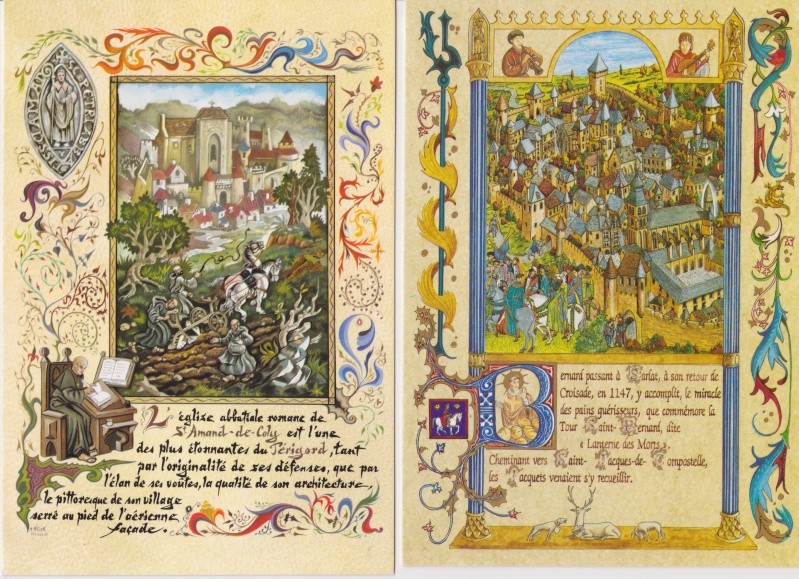 L'église abbatiale romane de
St Amand-de-Coly est l'une
des plus étonnantes du Périgord, tant
par l'originalité de ses défenses, que par
l'élan de ses voûtes, la qualité de son architecture,
le pittoresque de son village
serré au pied de l'aérienne
façade.
Bernard passant à Sarlat, à son retour de
Croisade, en 1147, y accomplit, le miracle
des pains guérisseurs, que commémore la
Tour Saint-Bernard, dite
« Lanterne des Morts ».
Cheminant vers Saint-Jacques-de-Compostelle,
les Jacquets venaient s'y recueillir.